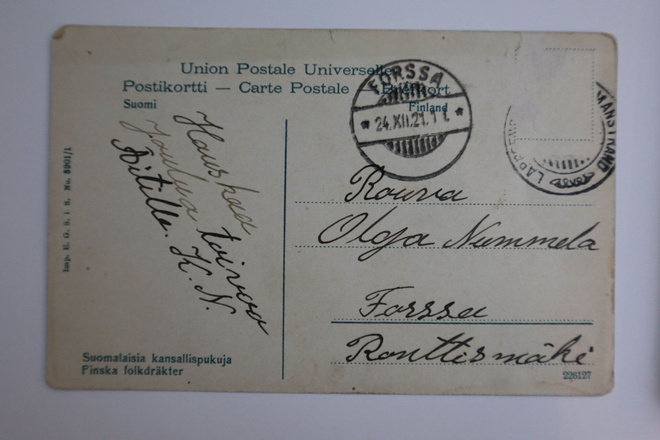 Union Postale Universelle
Postikortti — Carte Postale — Brefkort
Suomi
Finland
FORSSA
24.XII.21.11.
Hauskaa
Joulua toivoo
Äitille. K. N.
Rouva
Olga Nummela
Forssa
Ronttismäki
Imp. E. G. S. i. S. No. 8901/1
Suomalaisia kansallispukuja
Finska folkdräkter
226127